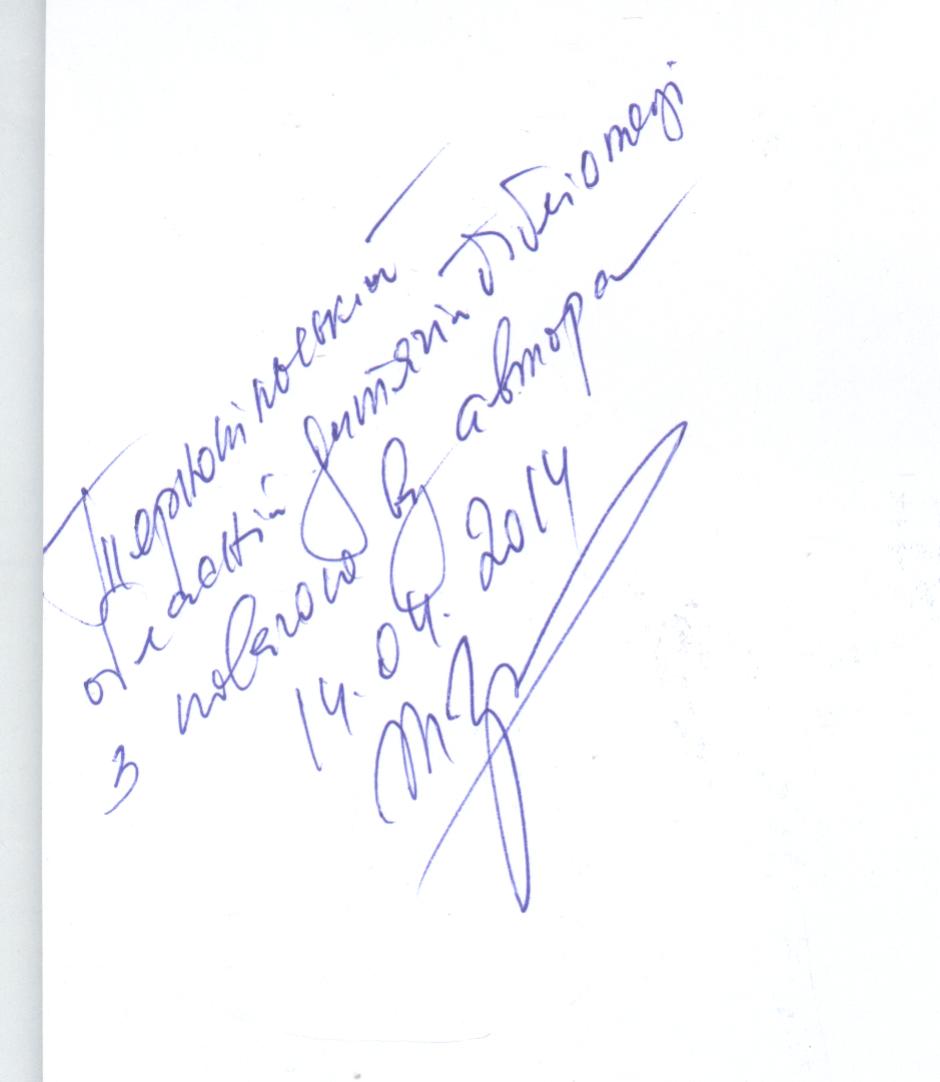 Тернопільській
обласній дитячій бібліотеці
з повагою від автора
14.04.2014